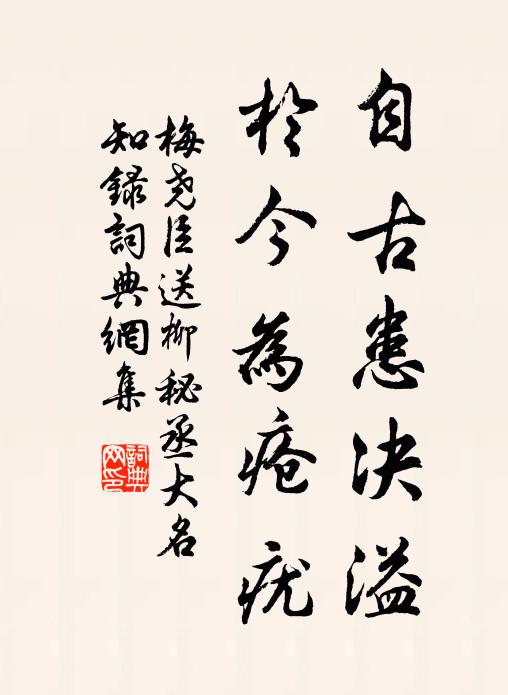 自古患决溢
於今為瘡疣
梅尧臣送柳秘丞大名
知録詞典網集
詞典
网印